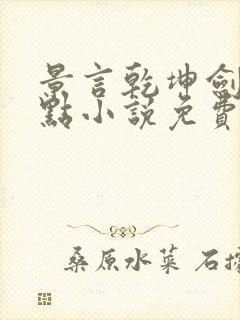 景言乾坤劍
點小説免費
桑原水菜 石